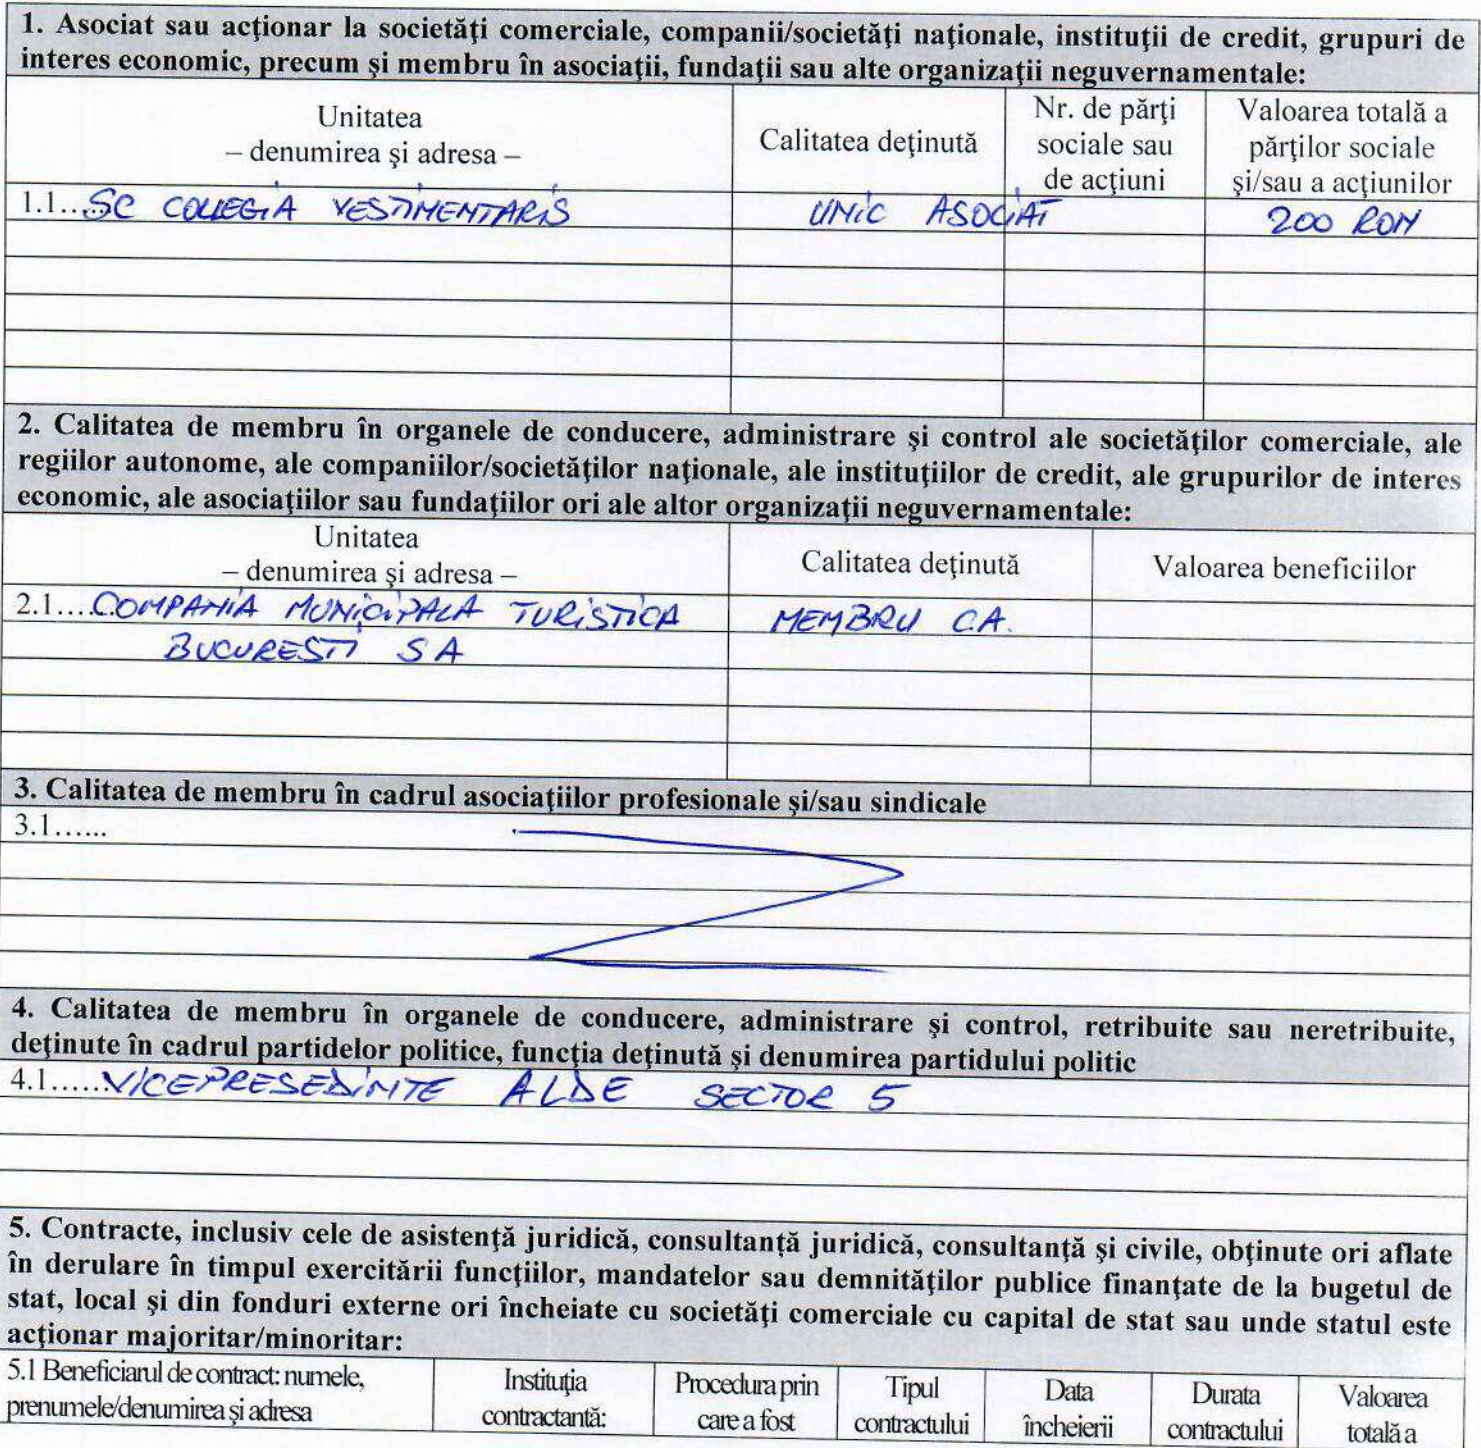 1. Asociat sau acţionar la societăţi comerciale, companii/societăţi naţionale, instituţii de credit, grupuri de
interes economic, precum şi membru în asociaţii, fundaţii sau alte organizaţii neguvernamentale:
Unitatea
– denumirea şi adresa –
Calitatea deţinută
Nr. de părţi
sociale sau
de acţiuni
Valoarea totală a
părţilor sociale
şi/sau a acţiunilor
1.1...... SC COLLEGIA VESTIMENTARIS UNIC ASOCIAT 200 RON
2. Calitatea de membru în organele de conducere, administrare şi control ale societăţilor comerciale, ale
regiilor autonome, ale companiilor/societăţilor naţionale, ale instituţiilor de credit, ale grupurilor de interes
economic, ale asociaţiilor sau fundaţiilor ori ale altor organizaţii neguvernamentale:
Unitatea
– denumirea şi adresa –
Calitatea deţinută
Valoarea beneficiilor
2.1...... COMPANIA MUNICIPALA TURISTICA MEMBRU C.A.
BUCURESTI SA
3. Calitatea de membru în cadrul asociaţiilor profesionale şi/sau sindicale
3.1......
4. Calitatea de membru în organele de conducere, administrare şi control, retribuite sau neretribuite,
deţinute în cadrul partidelor politice, funcţia deţinută şi denumirea partidului politic
4.1...... VICEPRESEDINTE ALDE SECTOR 5
5. Contracte, inclusiv cele de asistenţă juridică, consultanţă juridică, consultanţă şi civile, obţinute ori aflate
în derulare în timpul exercitării funcţiilor, mandatelor sau demnităţilor publice finanţate de la bugetul de
stat, local şi din fonduri externe ori încheiate cu societăţi comerciale cu capital de stat sau unde statul este
acţionar majoritar/minoritar:
5.1 Beneficiarul de contract: numele,
prenumele/denumirea şi adresa
Instituţia
contractantă:
Procedura prin
care a fost
Tipul
contractului
Data
încheierii
Durata
contractului
Valoarea
totală a